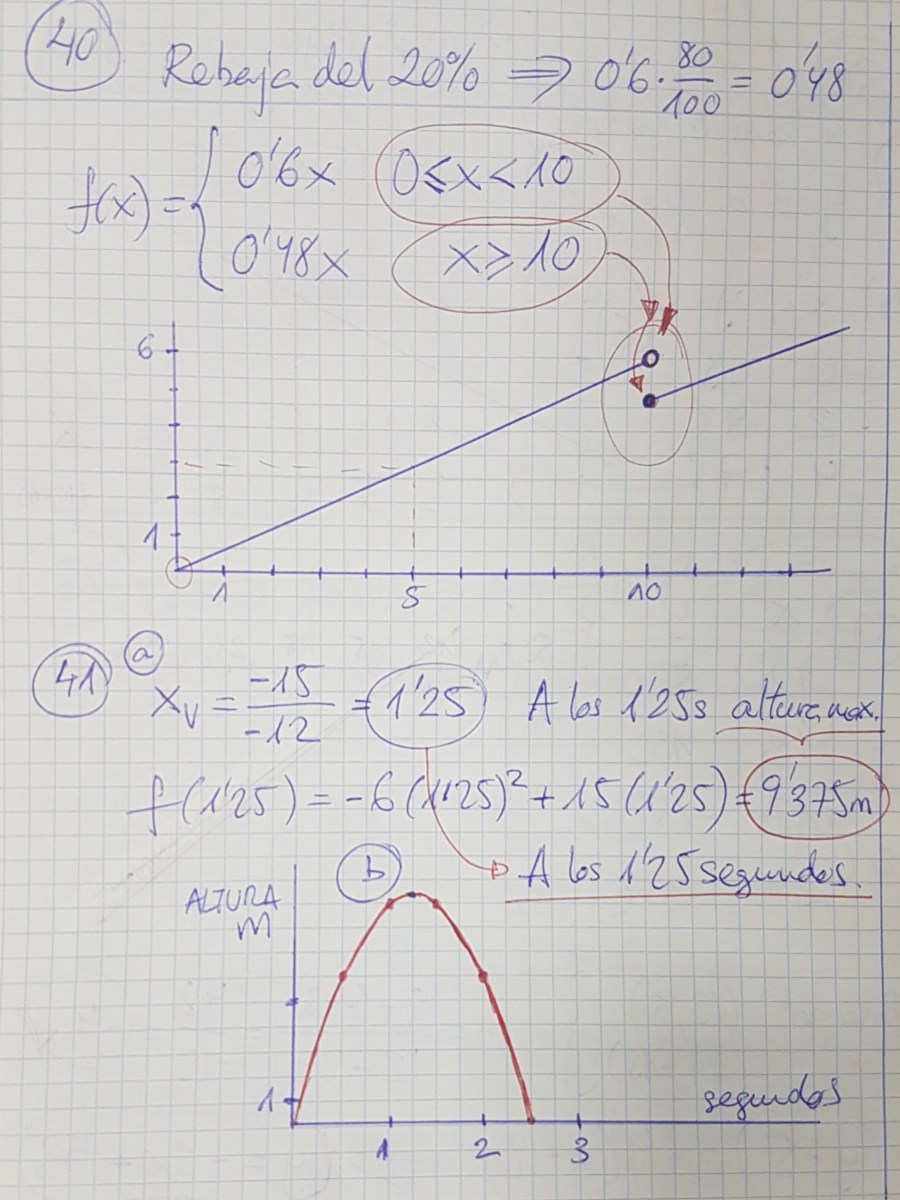 40 Rebaja del 20% ⟹ 0'6 · 80/100 = 0'48
f(x) = { 0'6x 0≤x<10
0'48x x≥10
6
1
1 5 10
41 a
x_v = -15/-12 = 1'25 A los 1'25s altura max.
f(1'25) = -6(1'25)² + 15(1'25) = 9'375m
b A los 1'25 segundos.
ALTURA
m
1
segundos
1 2 3